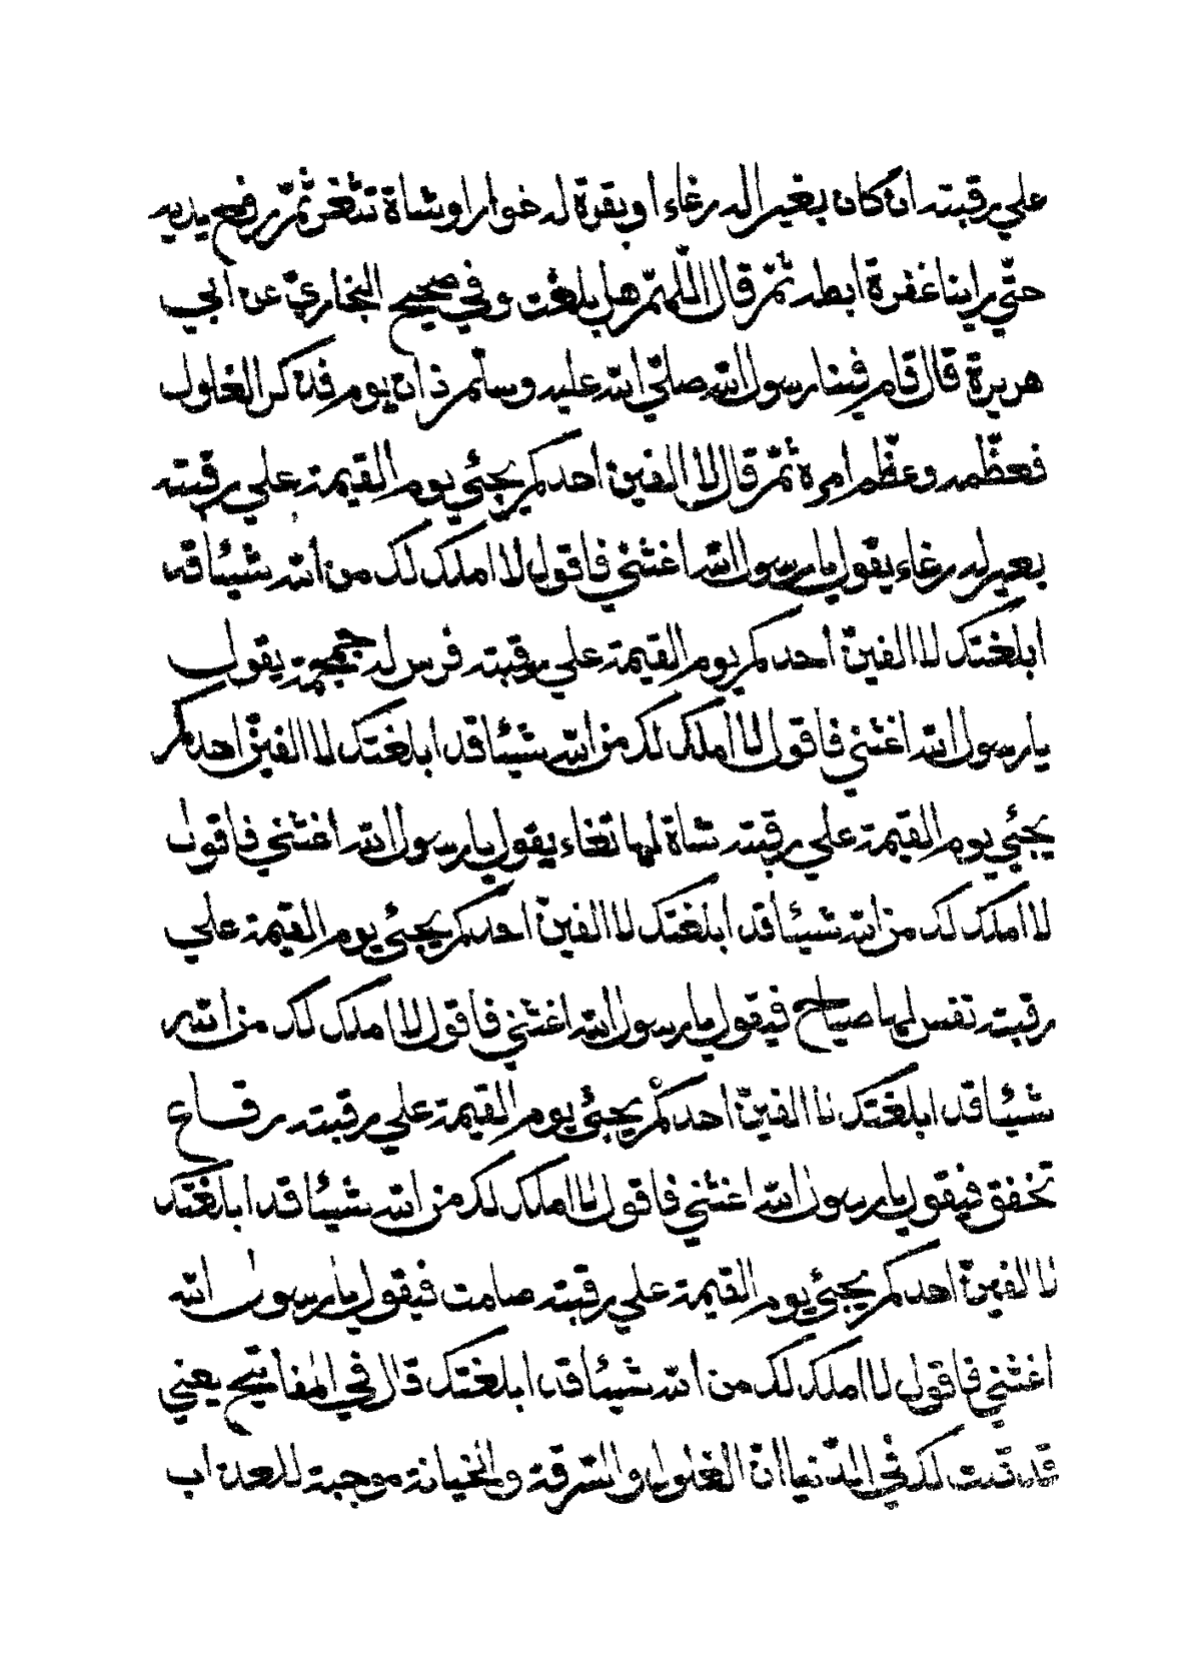 علي رقبته ان كان بغير اله رغاء او بقرة له خوار او شاة تثغر ثمّ رفع يديه
حتّي راينا غفرة ابطه ثمّ قال اللّهمّ هل بلغت وفي صحيح البخاريّ عن ابي
هريرة قال قام فينا رسول الله صلّي الله عليه وسلّم ذات يوم فذكر الغلول
فعظّمه وعظّم امره ثمّ قال لا الفين احدكم يجئي يوم القيمة علي رقبته
بعير له رغاء يقول يا رسول الله اغثني فاقول لا املك لك من الله شيئا قد
ابلغتك لا الفينّ احدكم يوم القيمة علي رقبته فرس له حمحمة يقول
يا رسول الله اغثني فاقول لا املك لك من الله شيئا قد ابلغتك لا الفينّ احدكم
يجئي يوم القيمة علي رقبته شاة لها ثغاء يقول يا رسول الله اغثني فاقول
لا املك لك من الله شيئا قد ابلغتك لا الفينّ احدكم يجئي يوم القيمة علي
رقبته نفس لها صياح فيقول يا رسول الله اغثني فاقول لا املك لك من الله
شيئا قد ابلغتك لا الفينّ احدكم يجئي يوم القيمة علي رقبته رقاع
تخفق فيقول يا رسول الله اغثني فاقول لا املك لك من الله شيئا قد ابلغتك
لا الفينّ احدكم يجئي يوم القيمة علي رقبته صامت فيقول يا رسول الله
اغثني فاقول لا املك لك من الله شيئا قد ابلغتك قال في المفاتيح يعني
قد لك في الدّنيا انّ الغلول والسّرقة والخيانة موجبة للعذاب